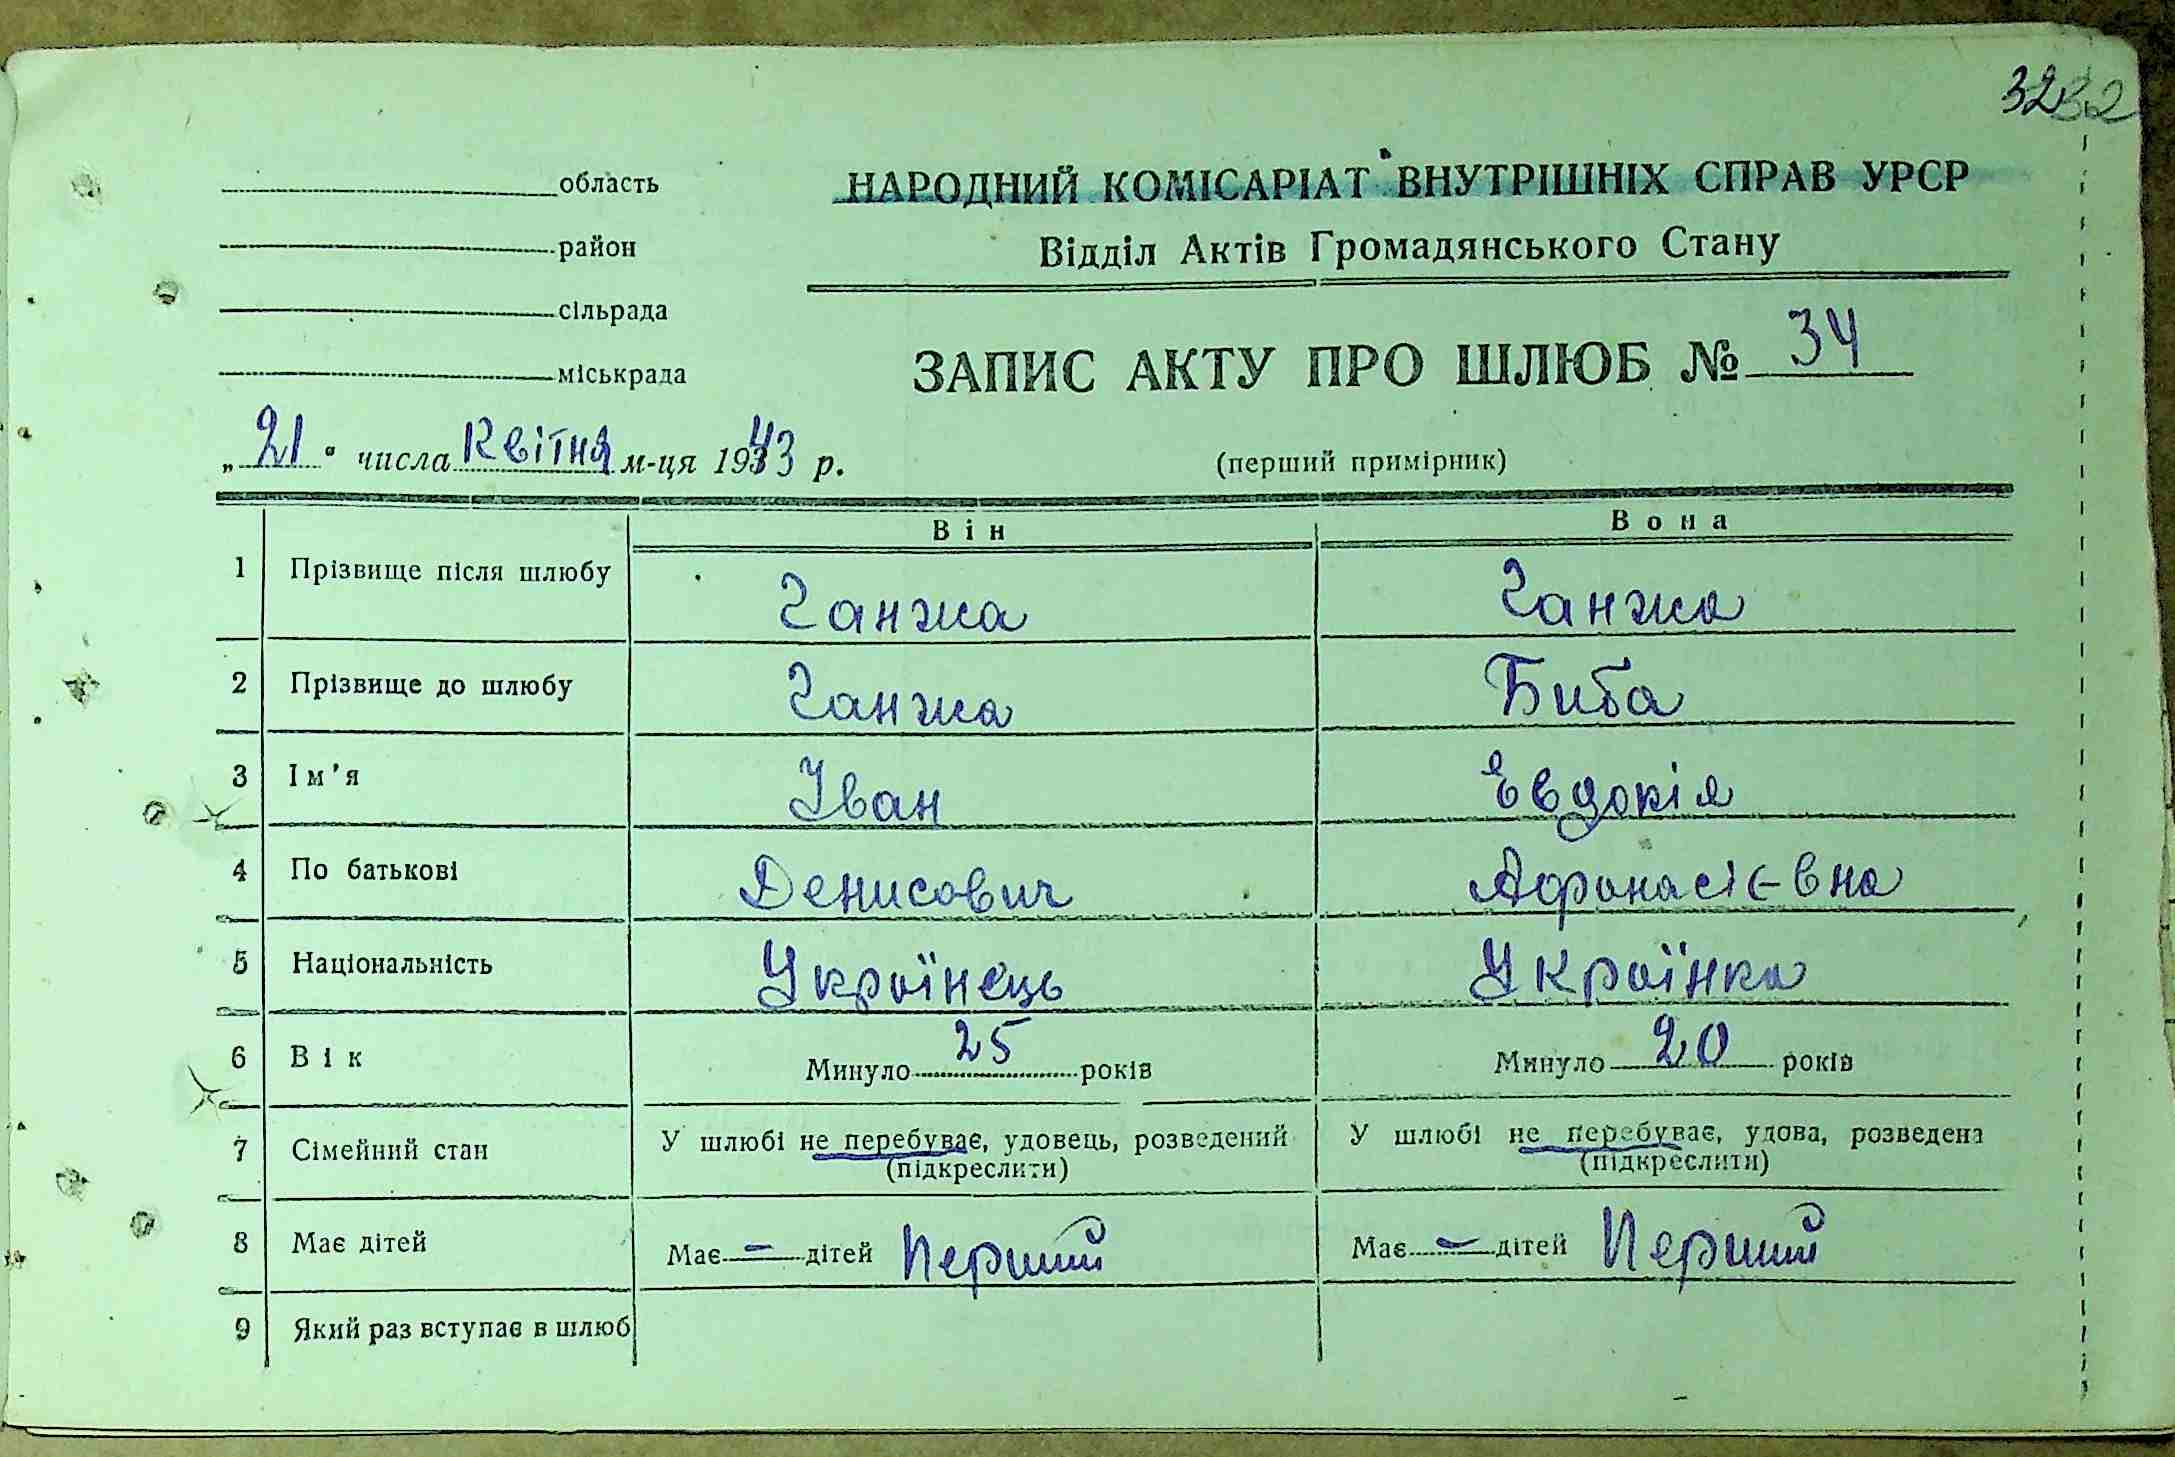 32 32
область
район
сільрада
міськрада
НАРОДНИЙ КОМІСАРІАТ ВНУТРІШНІХ СПРАВ УРСР
Відділ Актів Громадянського Стану
ЗАПИС АКТУ ПРО ШЛЮБ № 34
(перший примірник)
„21" числа Квітня м-ця 1943 р.
Він Вона
1 Прізвище після шлюбу Ганжа Ганжа
2 Прізвище до шлюбу Ганжа Биба
3 Ім'я Іван Евдокія
4 По батькові Денисович Афонасієвна
5 Національність Українець Українка
6 Вік Минуло 25 років Минуло 20 років
7 Сімейний стан У шлюбі не перебуває, удовець, розведений У шлюбі не перебуває, удова, розведена
(підкреслити) (підкреслити)
8 Має дітей Має – дітей Перший Має – дітей Перший
9 Який раз вступає в шлюб